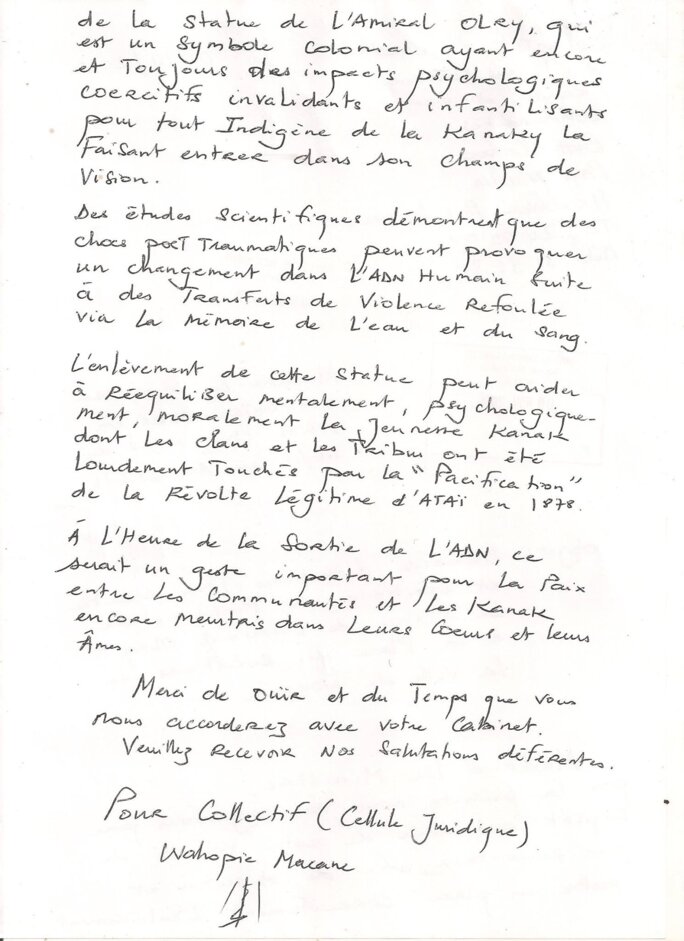 de la Statue de L'Amiral OLRY, qui
est un symbole colonial ayant encore
et Toujours des impacts psychologiques
coercitifs invalidants et infantilisants
pour tout Indigène de la Kanaky la
Faisant entrer dans son champs de
Vision.
Des études scientifiques démontrent que des
chocs post Traumatiques peuvent provoquer
un changement dans L'ADN Humain suite
à des Transferts de Violence Refoulée
via la mémoire de L'eau et du sang.
L'enlèvement de cette statue peut aider
à Rééquiliber mentalement, psychologique-
ment, moralement la jeunesse Kanak
dont les clans et les Tribus ont été
lourdement Touchés par la "Pacification"
de la Révolte Légitime d'ATAÏ en 1878.
À L'Heure de la Sortie de L'ADN, ce
serait un geste important pour la Paix
entre les Communautés et les Kanak
encore meurtris dans Leurs Coeurs et leurs
Âmes.
Merci de Ouïr et du Temps que vous
nous accorderez avec votre Cabinet.
Veuillez Recevoir Nos Salutations déférentes.
Pour Collectif (Cellule Juridique)
Wahopie